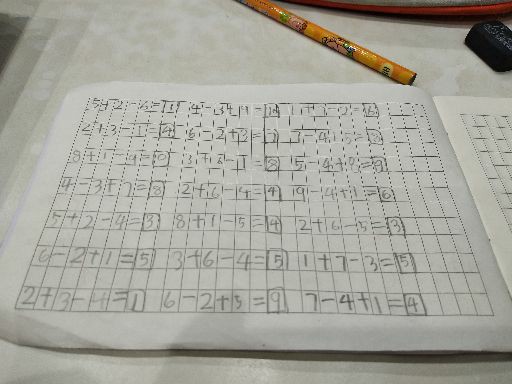 5+2-6=1 4-3+9=10 1+7-2=6
2+3-1=4 6-2+3=7
8+1-9=0 3+6-1=8 5-4+8=9
4-3+7=8 2+6-4=4 9-4+1=6
5+2-4=3 8+1-5=4 2+6-5=3
6-2+1=5 3+6-4=5 1+7-3=5
2+3-4=1 6-2+5=9 7-4+1=4